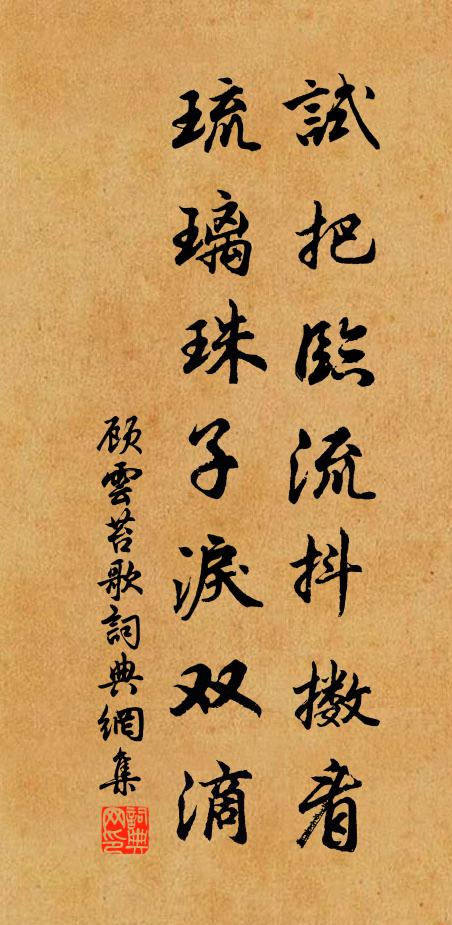 試把臨流抖擻看
琉璃珠子淚双滴
顧雲苔歌詞典網集
詞典網印